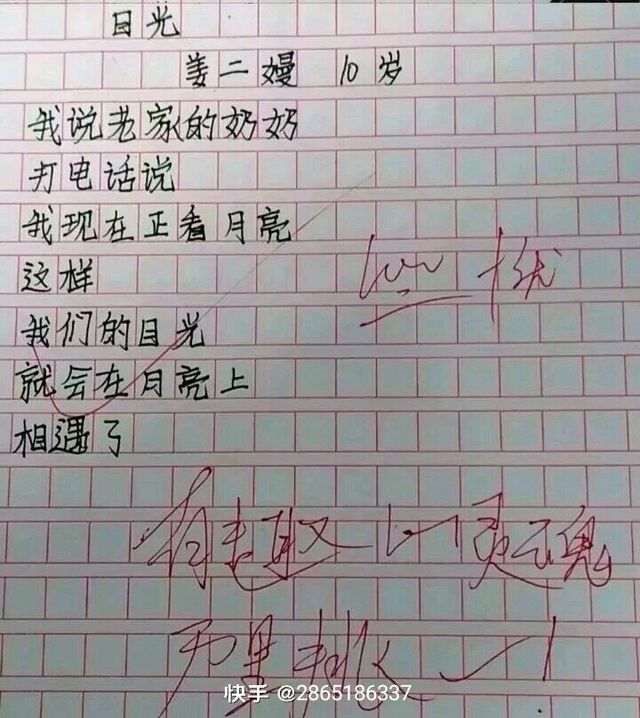 目光
姜二嫚 10岁
我说老家的奶奶
打电话说
我现在正看月亮
这样
我们的目光
就会在月亮上
相遇了
100 优
有趣的灵魂
万里挑一！
快手 @2865186337